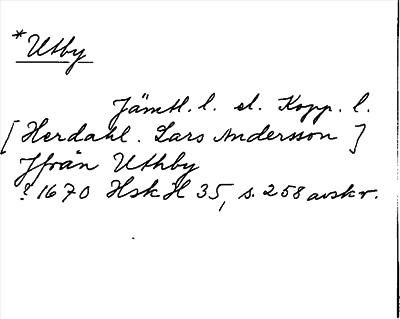 *Utby
Jämtl. l. el. Kopp. l.
[Herdahl. Lars Andersson]
Ifrån Uthby
? 1670 HskH 35, s. 258 avskr.